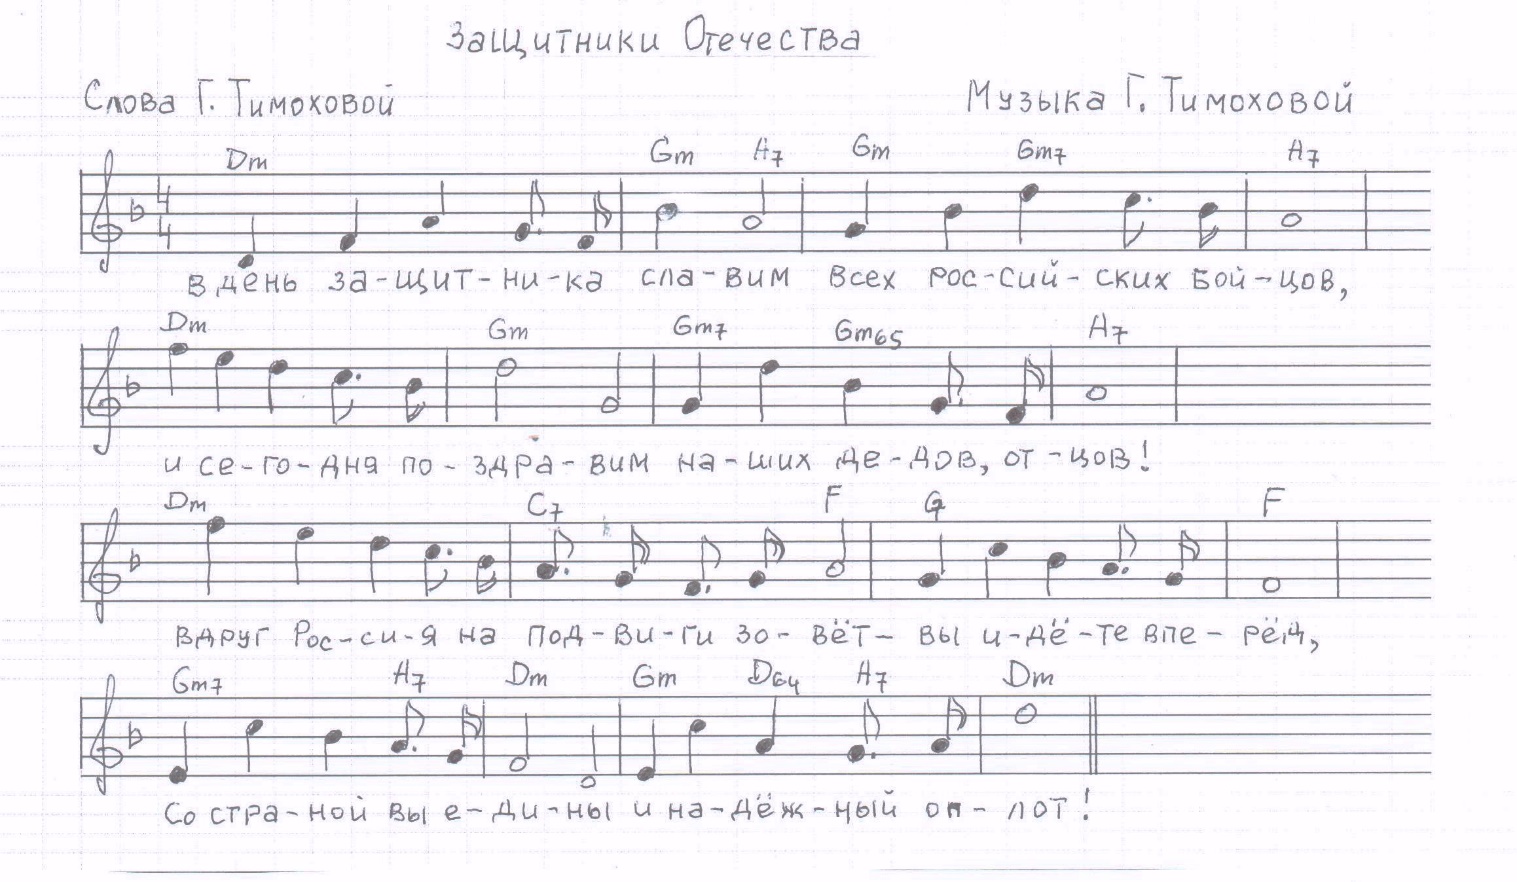 Защитники Отечества
Слова Г. Тимоховой Музыка Г. Тимоховой
Dm Gm A7 Gm Gm7 A7
4
4
В день за-щит-ни-ка сла-вим всех рос-сий-ских бой-цов,
Dm Gm Gm7 Gm65 A7
и се-го-дня по-здра-вим на-ших де-дов, от-цов!
Dm C7 F G F
вдруг Рос-си-я на под-ви-ги зо-вёт- вы и-дё-те впе-рёд,
Gm7 A7 Dm Gm D64 A7 Dm
Со стра-ной вы е-ди-ны и на-дёж-ный оп-лот!